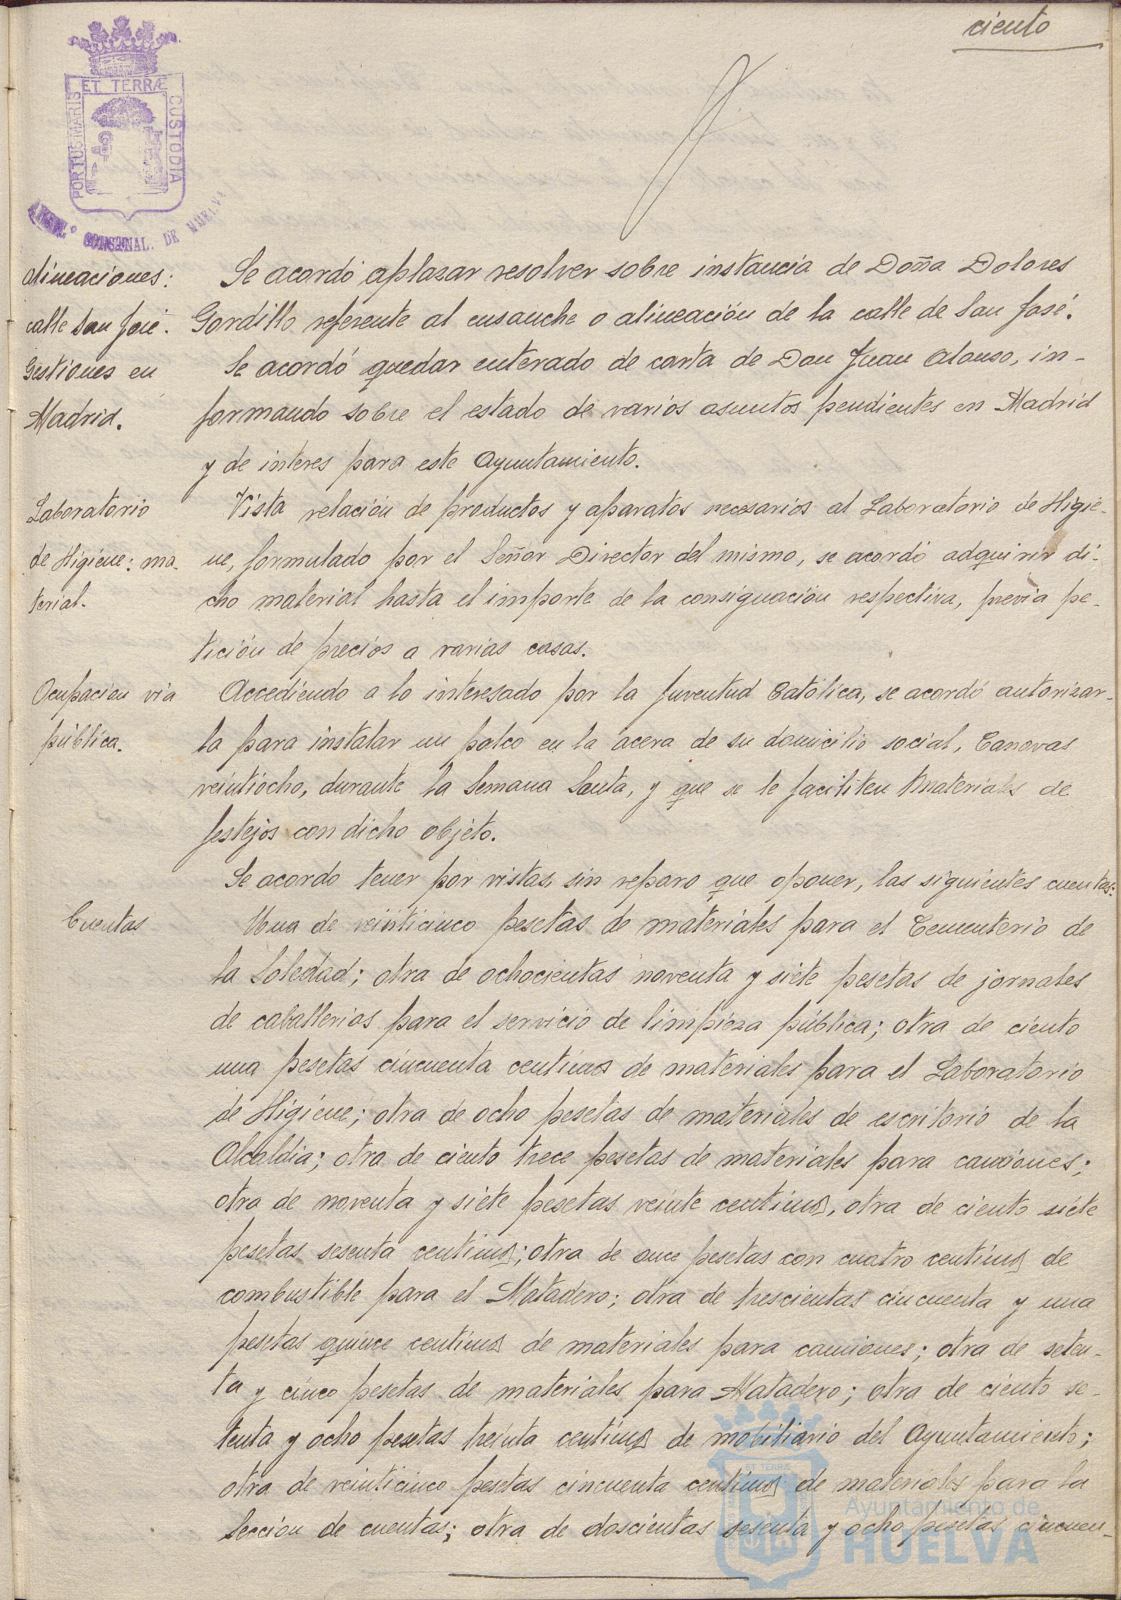 ciento
PORTUS MARIS ET TERRÆ CUSTODIA
alineaciones:
calle San José.
Se acordó aplazar resolver sobre instancia de Doña Dolores
Gordillo referente al ensanche o alineación de la calle de San José.
Gestiones en
Madrid.
Se acordó quedar enterado de carta de Don Juan Alonso, in-
formando sobre el estado de varios asuntos pendientes en Madrid
y de interes para este Ayuntamiento.
Laboratorio
de Higiene: ma-
terial.
Vista relación de productos y aparatos necesarios al Laboratorio de Higie-
ne, formulado por el Señor Director del mismo, se acordó adquirir di-
cho material hasta el importe de la consignación respectiva, previa pe-
tición de precios a varias casas.
Ocupacion via
pública.
Accediendo a lo interesado por la Juventud Católica, se acordó autorizar-
la para instalar un palco en la acera de su domicilio social, Canovas
veintiocho, durante la Semana Santa, y que se le faciliten materiales de
festejos con dicho objeto.
Se acordo tener por vistas, sin reparo que oponer, las siguientes cuentas:
Cuentas
Una de veinticinco pesetas de materiales para el Cementerio de
la Soledad; otra de ochocientas noventa y siete pesetas de jornales
de caballerias para el servicio de limpieza pública; otra de ciento
una pesetas cincuenta centimos de materiales para el Laboratorio
de Higiene; otra de ocho pesetas de materiales de escritorio de la
Alcaldia; otra de ciento trece pesetas de materiales para camiones;
otra de noventa y siete pesetas veinte centimos, otra de ciento siete
pesetas sesenta centimos; otra de once pesetas con cuatro centimos de
combustible para el Matadero; otra de trescientas cincuenta y una
pesetas quince centimos de materiales para camiones; otra de seten-
ta y cinco pesetas de materiales para Matadero; otra de ciento se-
tenta y ocho pesetas treinta centimos de mobiliario del Ayuntamiento;
otra de veinticinco pesetas cincuenta centimos de materiales para la
Seccion de cuentas; otra de doscientas sesenta y ocho pesetas cincuen-
Ayuntamiento de
HUELVA